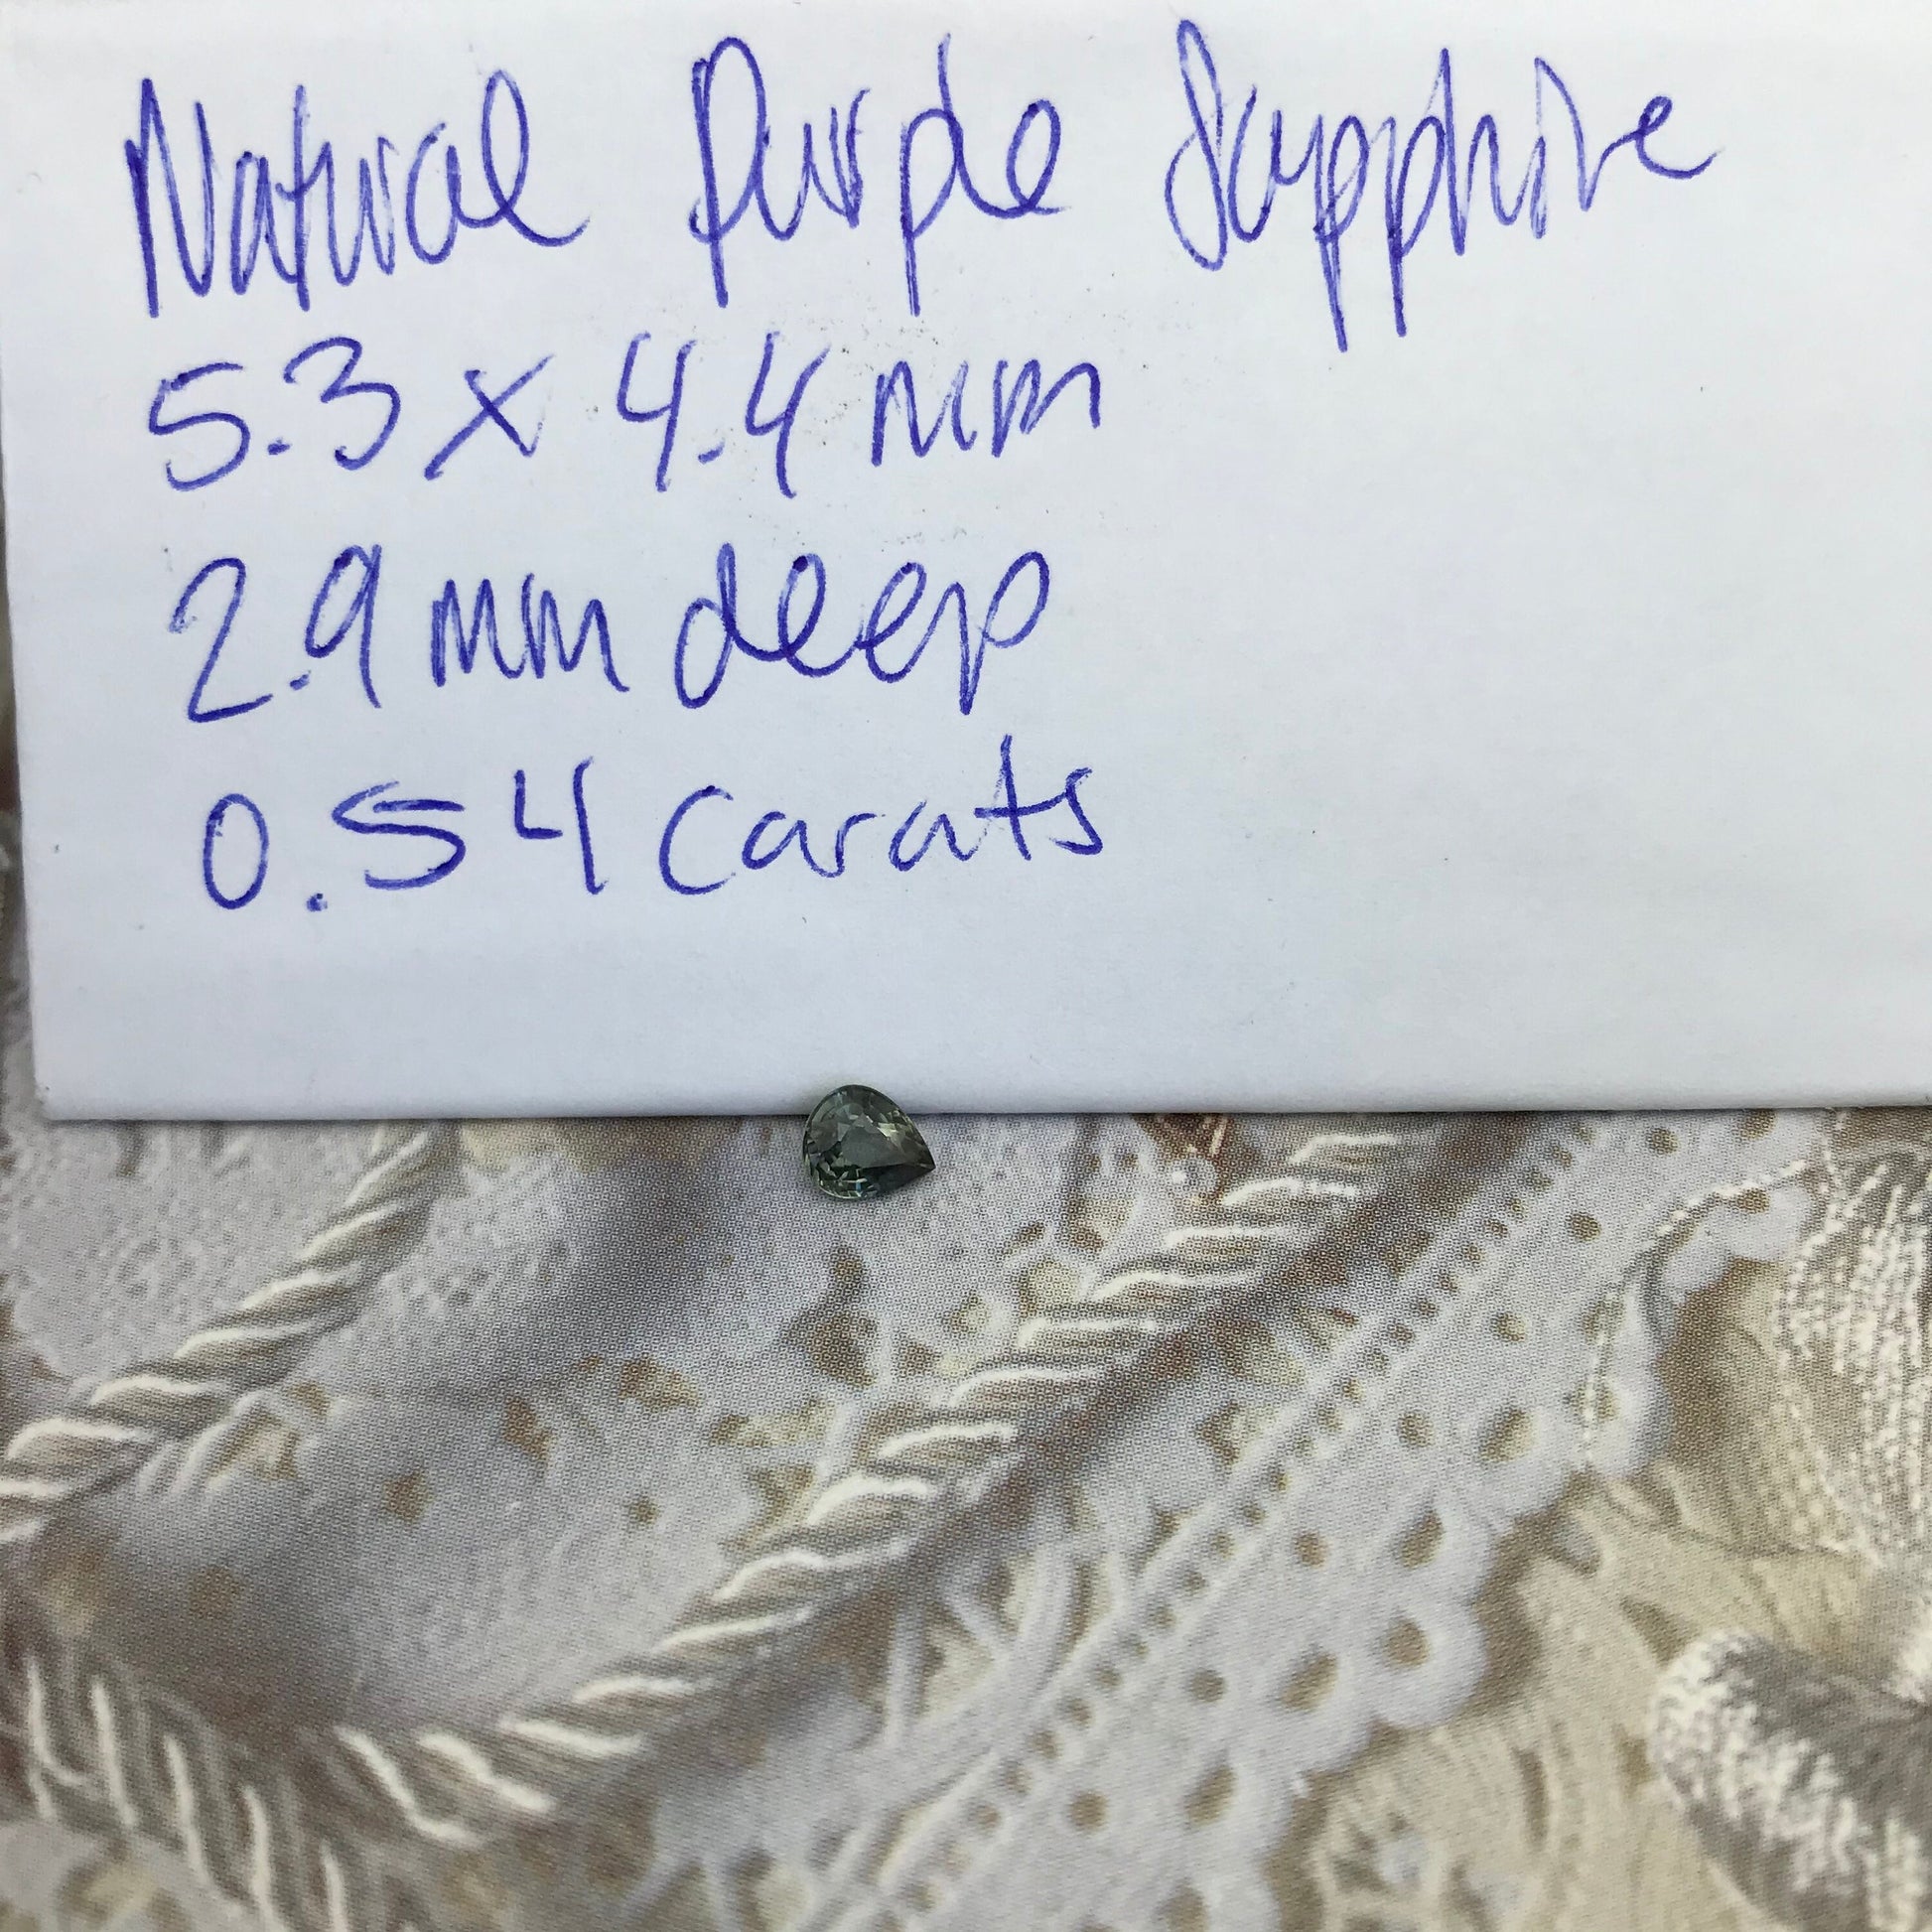 Natural Purple Sapphire
5.3 x 4.4 mm
2.9 mm deep
0.54 carats